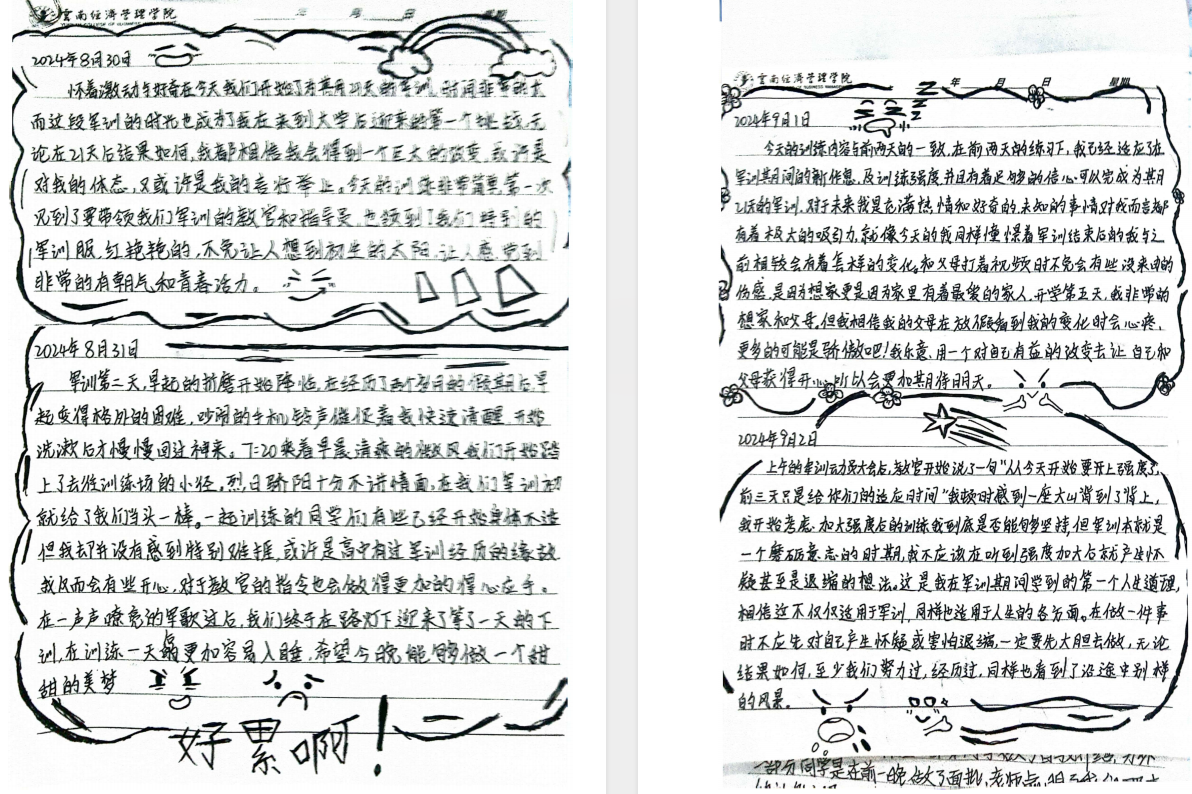 雲南经济管理学院
年 月 日 星期
2024年8月30日
怀着激动与好奇在今天我们开始了为其月21天的军训,时间非常的大
而这段军训的时光也成为了我在来到大学后迎来的第一个挑战,无
论在21天后结果如何,我都相信我会得到一个巨大的改变,或许是
对我的体态,又或许是我的言行举止。今天的训练非常简单,第一次
见到了要带领我们军训的教官和指导员,也领到了我们特别的
军训服,红艳艳的,不免让人想到初生的太阳,让人感觉到
非常的有朝气和青春活力。
2024年8月31日
军训第二天,早起的折磨开始降临,在经历了两个多月的假期后,早
起变得格外的困难,吵闹的手机铃声催促着我快速清醒,开始
洗漱后才慢慢回过神来。7:20乘着早晨清爽的微风我们开始踏
上了去往训练场的小径。烈日骄阳十分不讲情面,在我们军训初
就给了我们当头一棒。一起训练的同学们有些已经开始身体不适
但我却并没有感到特别难捱,或许是高中有过军训经历的缘故
我反而会有些开心,对于教官的指令也会做得更加的得心应手。
在一声声嘹亮的军歌过后,我们终于在路灯下迎来了等了一天的下
训,在训练一天后更加容易入睡,希望今晚能够做一个甜
甜的美梦
好累啊!
雲南经济管理学院
年 月 日 星期
2024年9月1日
今天的训练内容与前两天的一致,在前两天的练习下,我已经适应了在
军训其间的新作息,及训练强度,并且有着足够的信心可以完成为其月
21天的军训,对于未来我是充满热情和好奇的,未知的事情对我而言都
有着极大的吸引力,就像今天的我同样憧憬着军训结束后的我与之
前相较会有着怎样的变化。和父母打着视频时不免会有些没来由的
伤感,是因为想家更是因为家里有着最爱的家人,开学第五天,我非常的
想家和父母,但我相信我的父母在放假看到我的变化时会心疼,
更多的可能是骄傲吧!我乐意用一个对自己有益的改变去让自己和
父母获得开心,所以会更加期待明天。
2024年9月2日
上午的军训动员大会后,教官开始说了一句"从今天开始要开上强度了,
前三天只是给你们的适应时间"我顿时感到一座大山背到了背上,
我开始考虑,加大强度后的训练我到底是否能够坚持,但军训本就是
一个磨砺意志的时期,我不应该在听到强度加大后就产生怀
疑甚至是退缩的想法。这是我在军训其间学到的第一个人生道理,
相信这不仅仅适用于军训,同样也适用于人生的各方面。在做一件事
时不应先对自己产生怀疑或害怕退缩,一定要先大胆去做,无论
结果如何,至少我们努力过,经历过,同样也看到了沿途中别样
的风景。
一部分同学是在前一晚做了面批,老师